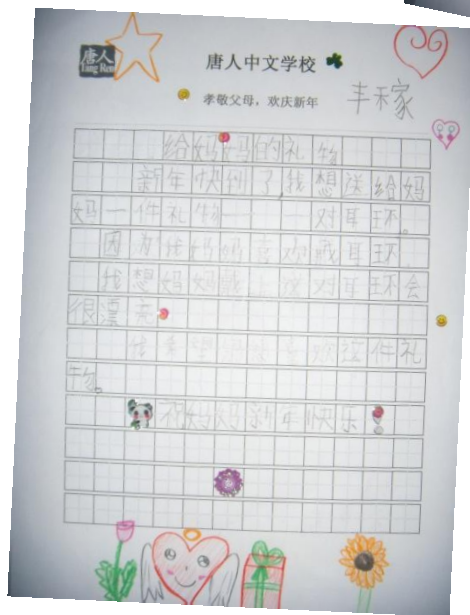 唐人
Tang Ren
唐人中文学校
孝敬父母，欢庆新年
丰禾家
给妈妈的礼物
新年快到了,我想送给妈
妈一件礼物——一对耳环。
因为我妈妈喜欢戴耳环
我想妈妈戴上这对耳环会
很漂亮
件礼
物。
祝妈妈新年快乐